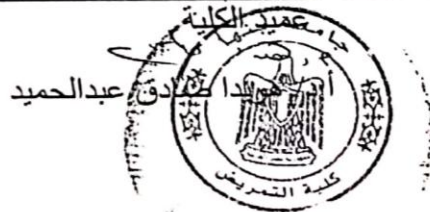 عميد الكلية
أ.د/ هويدا صادق عبدالحميد
كلية التمريض